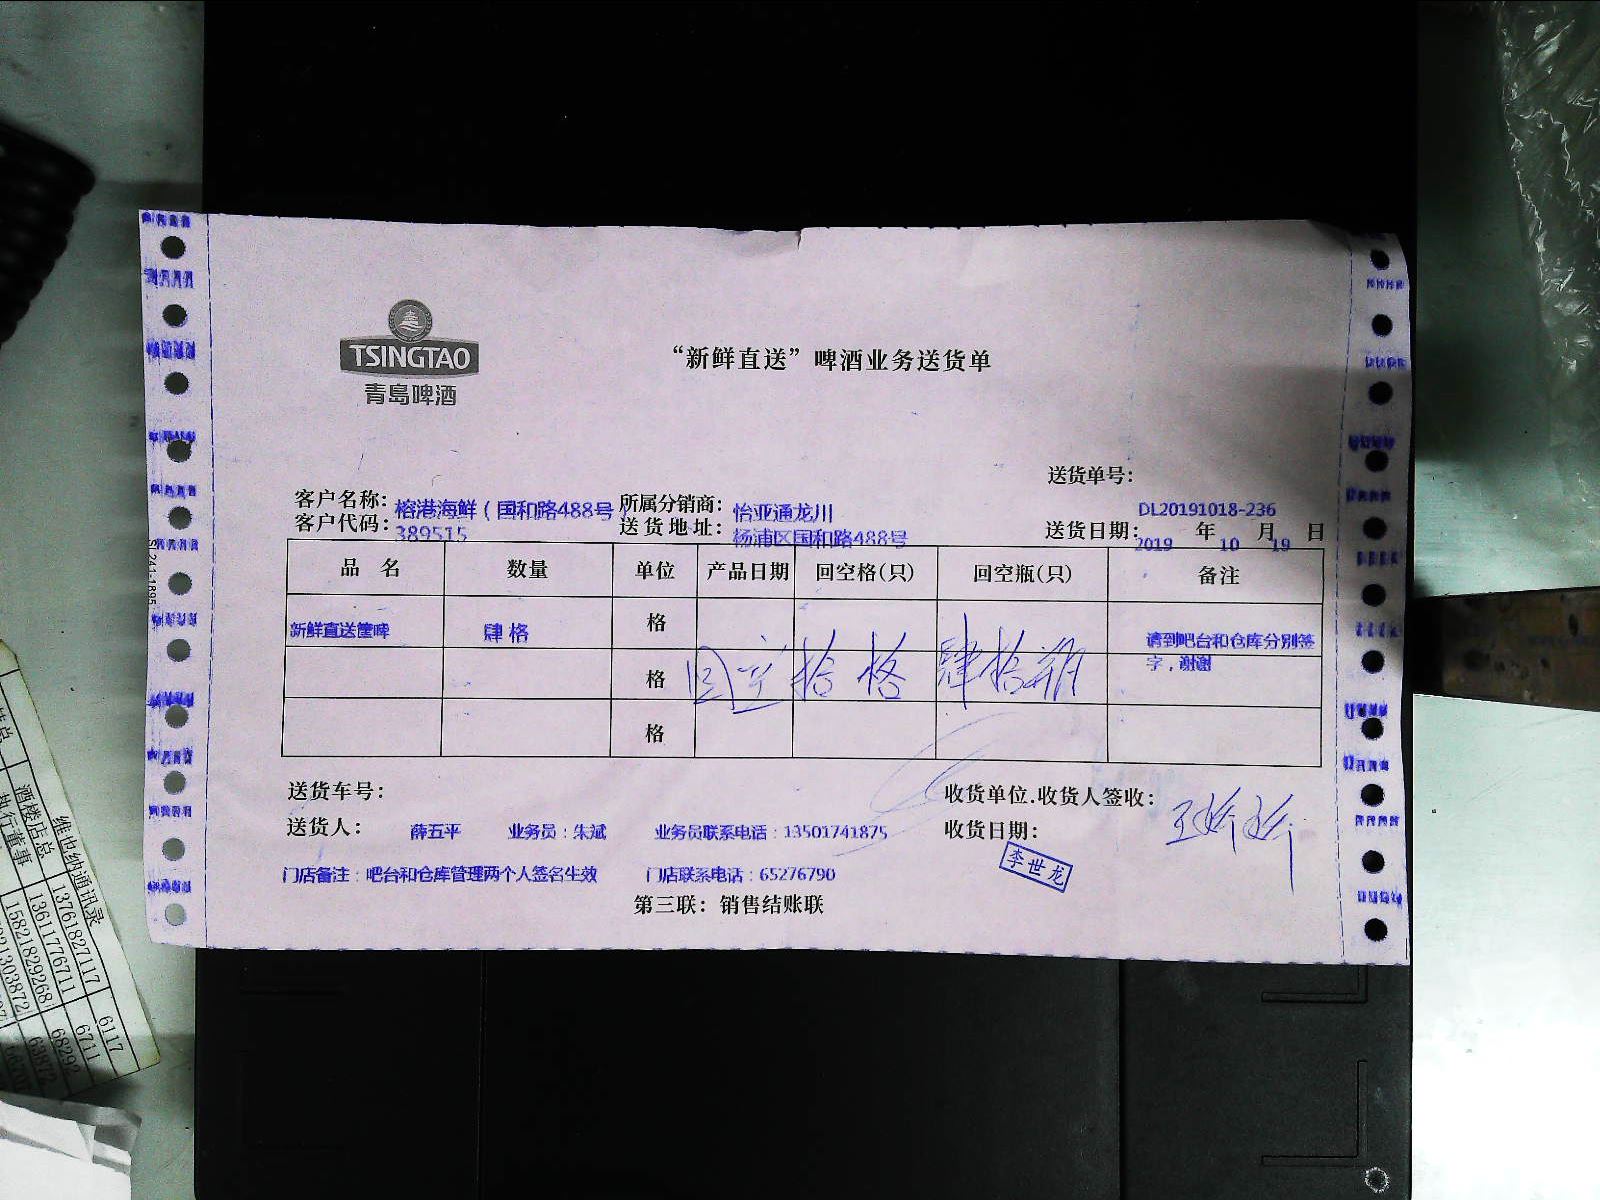 TSINGTAO
青岛啤酒
“新鲜直送”啤酒业务送货单
送货单号：
DL20191018-236
客户名称：榕港海鲜（国和路488号） 所属分销商：怡亚通龙川
客户代码：389515 送货地址：杨浦区国和路488号 送货日期：2019 年 10 月 19 日
品 名 数量 单位 产品日期 回空格(只) 回空瓶(只) 备注
新鲜直送筐啤 肆格 格 请到吧台和仓库分别签字，谢谢
格 回空 拾格 肆拾瓶
格
送货车号： 收货单位.收货人签收：
送货人： 薛五平 业务员：朱斌 业务员联系电话：13501741875 收货日期：
李世龙
门店备注：吧台和仓库管理两个人签名生效 门店联系电话：65276790
第三联：销售结账联
SL241-1895
维也纳通讯录
酒楼店总 13761827117 6117
执行董事 13611776711 6711
15821829268 68292
63872